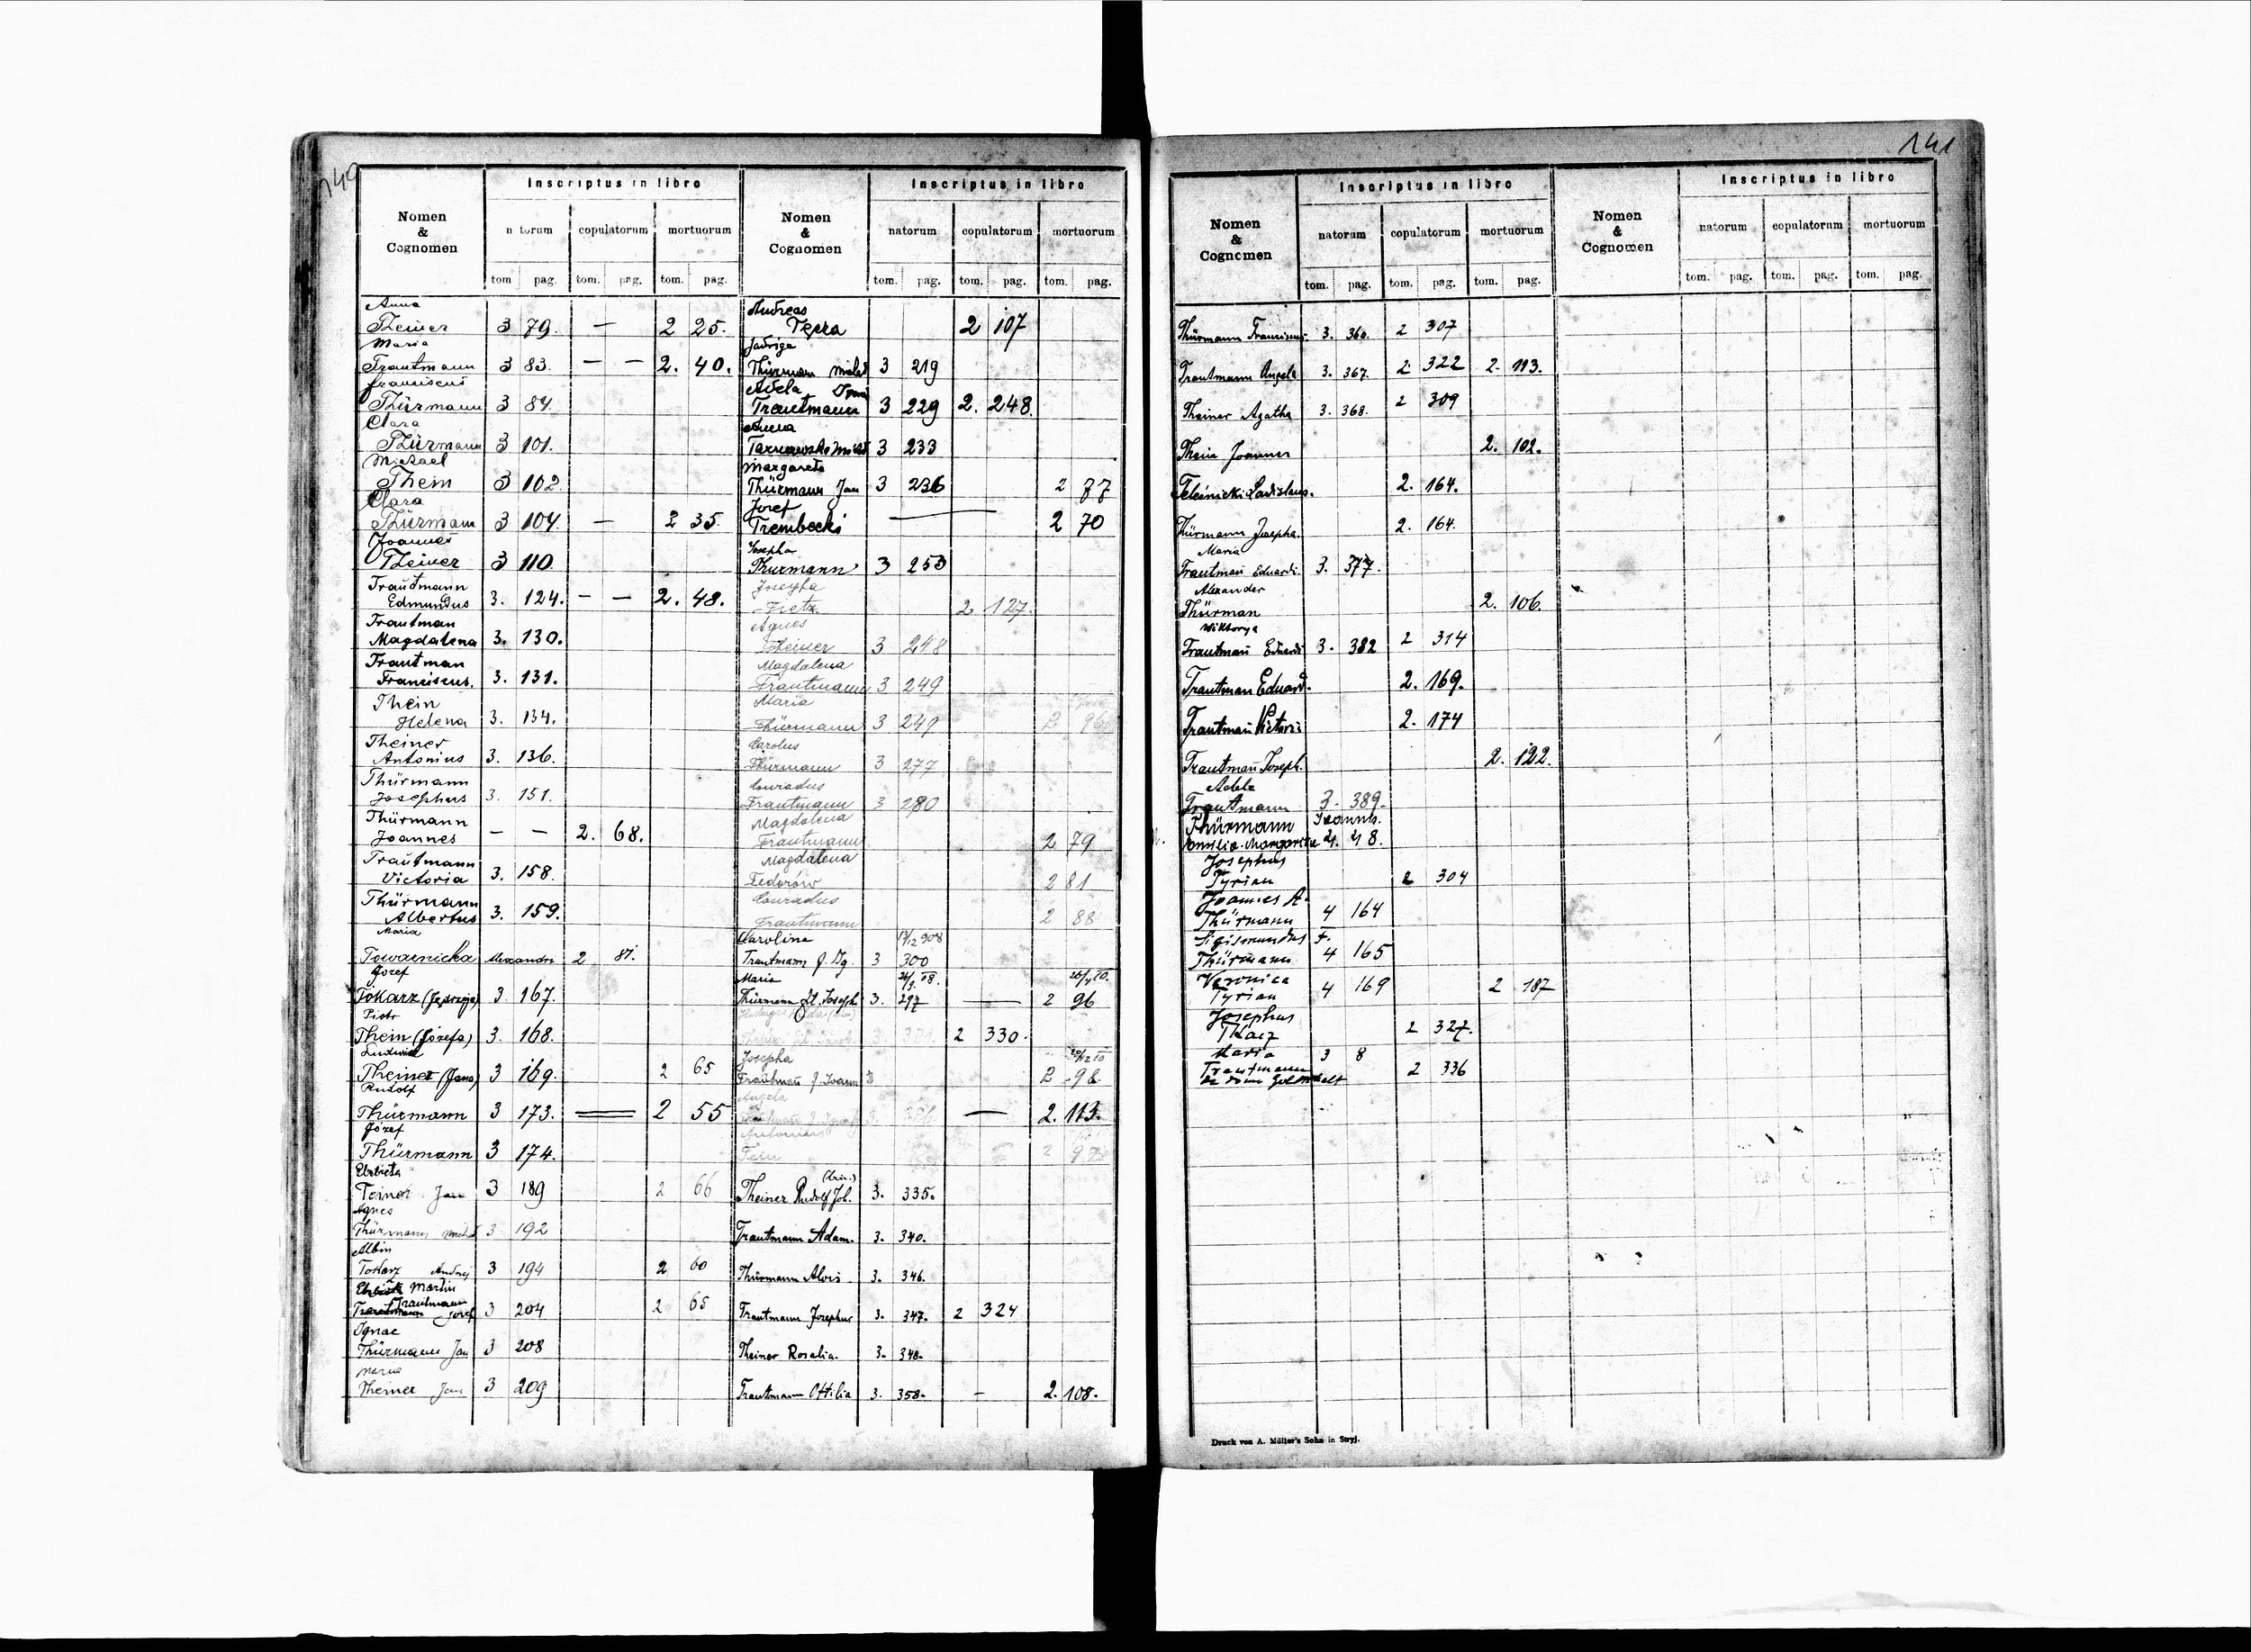 140
Inscriptus in libro
Nomen & Cognomen
natorum copulatorum mortuorum
tom. pag. tom. pag. tom. pag.
Anna
Theiner 3 79. — 2 25.
Maria
Trautmann 3 83. — — 2. 40.
Franciscus
Thürmann 3 84.
Clara
Thürmann 3 101.
Michael
Thein 3 102.
Clara
Thürmann 3 104. — 2 35.
Joannes
Theiner 3 110.
Trautmann
Edmundus 3. 124. — — 2. 48.
Trautman
Magdalena 3. 130.
Trautman
Franciscus. 3. 131.
Thein
Helena 3. 134.
Theiner
Antonius 3. 136.
Thürmann
Josephus 3. 151.
Thürmann
Joannes — — 2. 68.
Trautmann
Victoria 3. 158.
Thürmann
Albertus 3. 159.
Maria
Towarnicka Alexandri 2 81.
Józef
Tokarz (Jędrzeja) 3. 167.
Piotr
Thein (Józefa) 3. 168.
Ludwik
Theiner (Jana) 3 169. 2 65
Rudolf
Thürmann 3 173. 2 55
Józef
Thürmann 3 174.
Elżbieta
Teiner Jan 3 189 2 66
Agnes
Thürmann 3 192
Albin
Tokarz Andrzej 3 194 2 60
Martin
Trautmann Józef 3 204 2 65
Ignac
Thürmann Jan 3 208
Maria
Theiner Jan 3 209
Inscriptus in libro
Nomen & Cognomen
natorum copulatorum mortuorum
tom. pag. tom. pag. tom. pag.
Andreas
2 107
Jadviga
Thürmann 3 219
Adela
Trautmann 3 229 2. 248.
Anna
3 233
Margareta
Thürmann Jan 3 236 2 77
Jozef
Trembecki — 2 70
Josepha
Thurmann 3 253
Josepha
2 127.
Agnes
Theiner 3 248
Magdalena
Trautmann 3 249
Maria
Thürmann 3 249 2 96
Carolus
Thürmann 3 277
Conradus
Trautmann 3 280
Magdalena
Trautmann 2 79
Magdalena
Fedorów 2 81
Conradus
Trautmann 2 88
Karolina 13/12 908
Trautmann J. Ig. 3 300
Maria
Thürmann fil. Joseph 3. 297 — 2 96
2 330.
Josepha
Trautman J. Joann 3 2 98
Angela
3. — 2. 113.
Antonius
2 97
Theiner Rudolf Joh. 3. 335.
Trautmann Adam. 3. 340.
Thürmann Alois. 3. 346.
Trautmann Josephus 3. 347. 2 324
Theiner Rosalia. 3. 348.
Trautmann Ottilia 3. 358. — 2. 108.
141
Inscriptus in libro
Nomen & Cognomen
natorum copulatorum mortuorum
tom. pag. tom. pag. tom. pag.
Thürmann Franciscus. 3. 360. 2 307
Trautmann Angela 3. 367. 2. 322 2. 113.
Theiner Agatha 3. 368. 2 309
Thein Joannes 2. 102.
Teleśnicki Ladislaus. 2. 164.
Thürmann Josepha. 2. 164.
Maria
Trautman Eduardi. 3. 377.
Alexander
Thürman 2. 106.
Wiktorya
Trautman Eduardi 3. 382 2 314
Trautman Eduard. 2. 169.
Trautman Victori 2. 174
Trautman Joseph. 2. 122.
Adela
Trautmann 3. 389.
Thürmann Joannis.
Margarita 4. 48.
Josephus
Tyrian 2 304
Joannes A.
Thürmann 4 164
Sigismundus F.
Thürmann 4 165
Veronica
Tyrian 4 169 2 187
Josephus
Tkacz 2 327.
Maria 3 8
Trautmann 2 336
Inscriptus in libro
Nomen & Cognomen
natorum copulatorum mortuorum
tom. pag. tom. pag. tom. pag.
Druck von A. Müller's Sohn in Stryj.